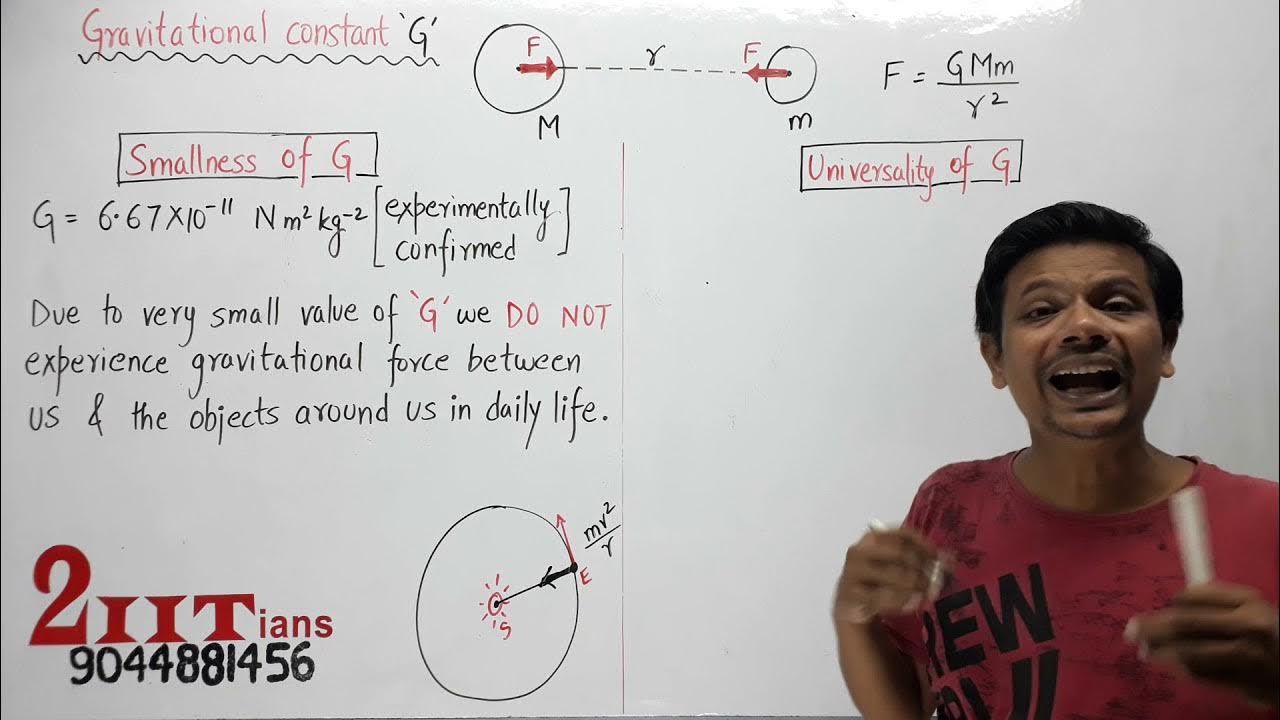 Gravitational constant 'G'
F
r
F
M
m
F = GMm / r²
Smallness of G
G = 6.67×10⁻¹¹ Nm²kg⁻² [experimentally
confirmed]
Due to very small value of 'G' we DO NOT
experience gravitational force between
us & the objects around us in daily life.
Universality of G
mv² / r
E
S
2IITians
9044881456